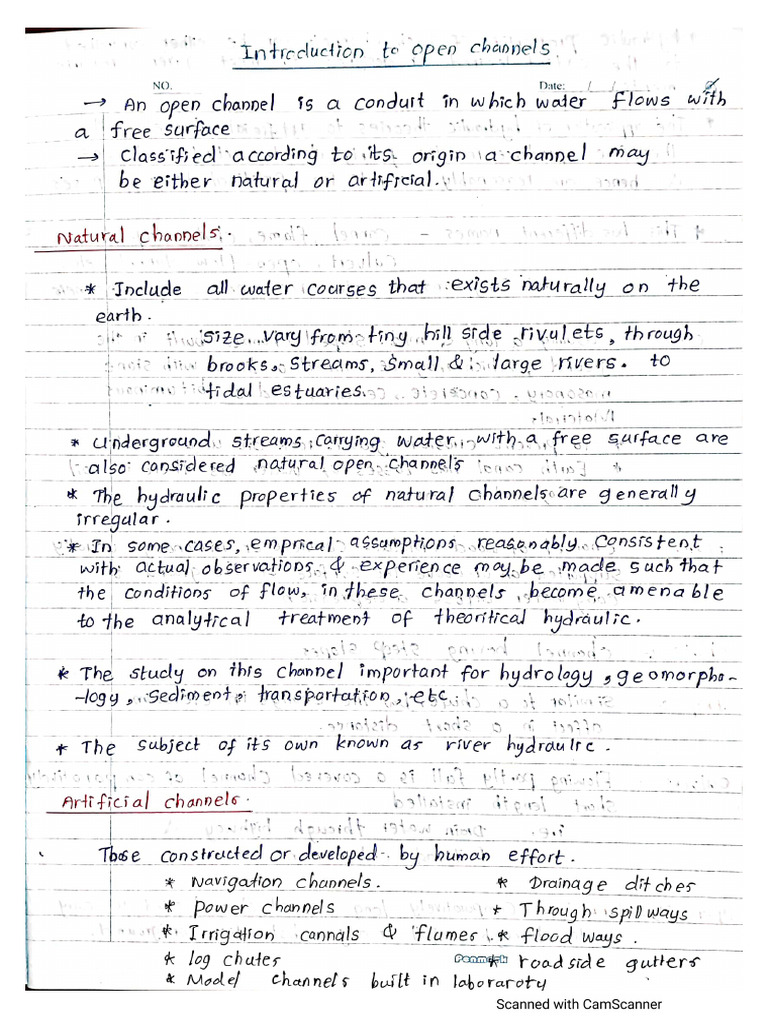 Introduction to open channels
NO.
Date:
→ An open channel is a conduit in which water flows with
a free surface
→ Classified according to its origin a channel may
be either natural or artificial.
Natural channels.
* Include all water courses that exists naturally on the
earth.
size vary from tiny hill side rivulets, through
brooks, streams, small & large rivers. to
tidal estuaries.
* underground streams carrying water with a free surface are
also considered natural open channels
* The hydraulic properties of natural channels are generally
irregular.
* In some cases, emprical assumptions reasonably consistent
with actual observations & experience may be made such that
the conditions of flow, in these channels, become amenable
to the analytical treatment of theoritical hydraulic.
* The study on this channel important for hydrology, geomorpho-
-logy, sediment transportation, etc
* The subject of its own known as river hydraulic.
Artificial channels.
Those constructed or developed by human effort.
* Navigation channels. * Drainage ditches
* power channels * Through spillways
* Irrigation cannals & flumes * flood ways.
* log chutes * roadside gutters
* Model channels built in laboraroty
Scanned with CamScanner